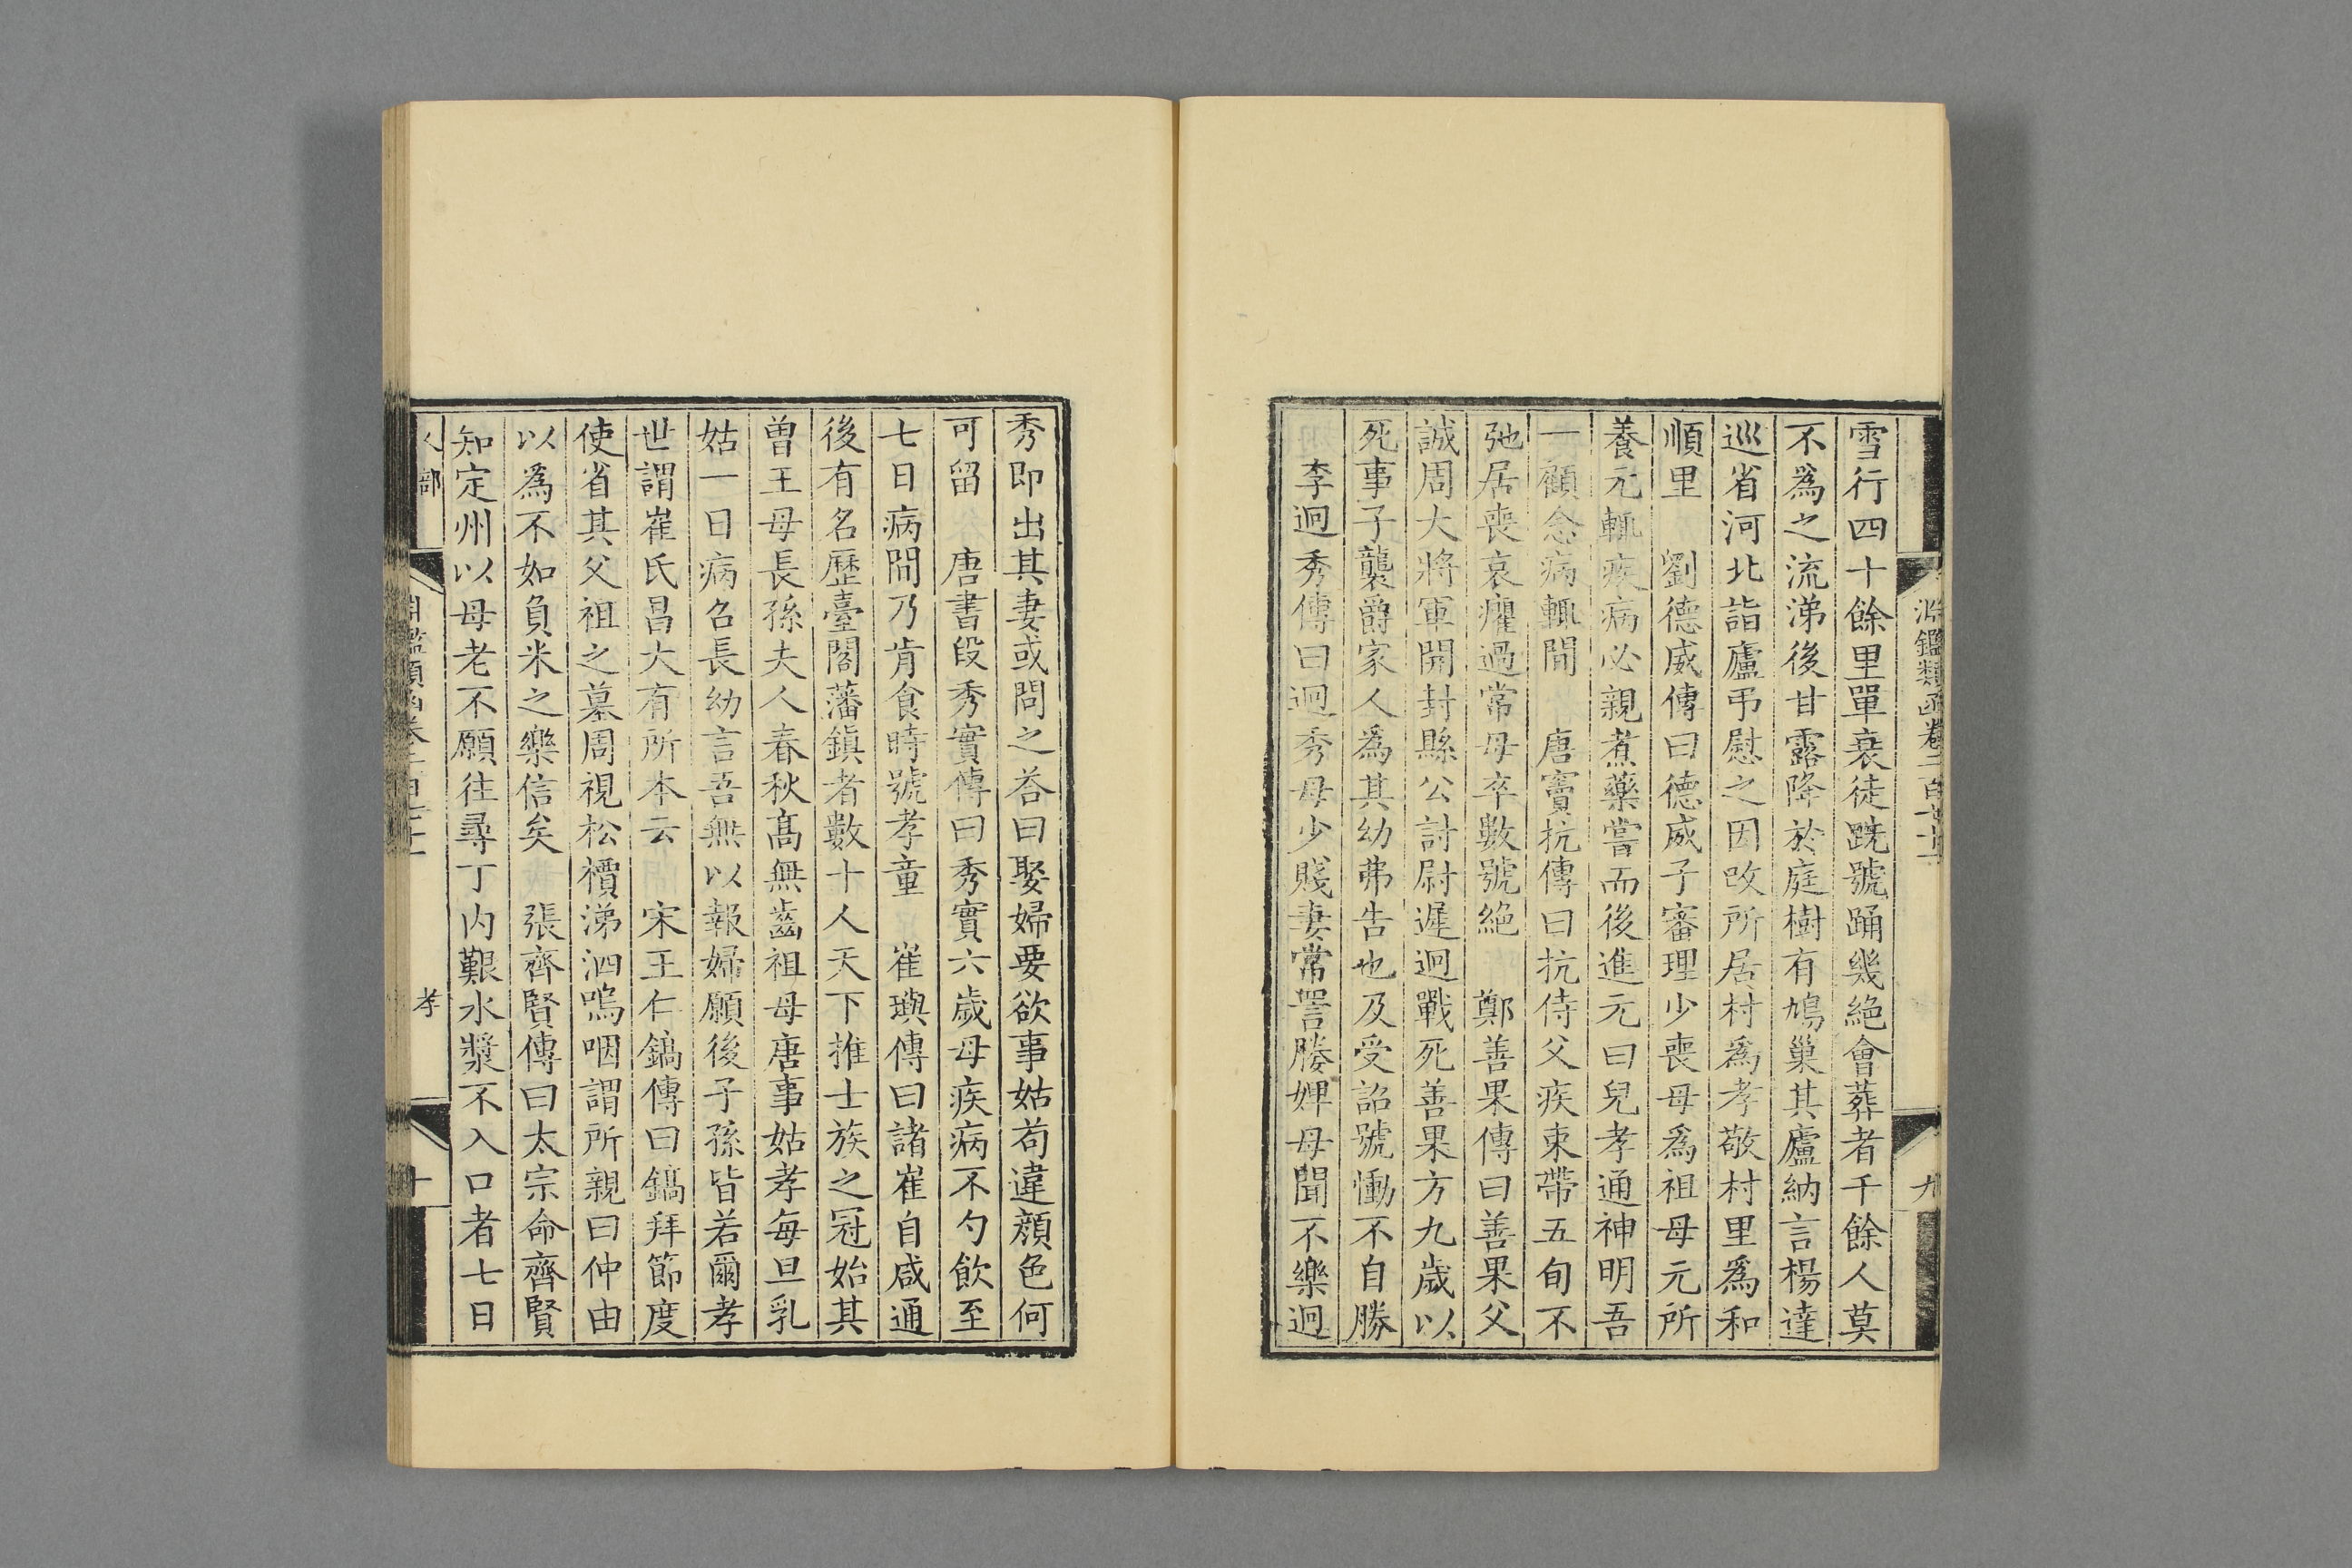 淵鑑類函卷二百七十一
九
雪行四十餘里單衰徒跣號踊幾絶會葬者千餘人莫
不爲之流涕後甘露降於庭樹有鳩巢其廬納言楊達
巡省河北詣廬弔慰之因改所居村爲孝敬村里爲和
順里　劉德威傳曰德威子審理少喪母爲祖母元所
養元輒疾病必親煮藥嘗而後進元曰兒孝通神明吾
一顧念病輒間　唐竇抗傳曰抗侍父疾束帶五旬不
弛居喪哀癯過常母卒數號絶　鄭善果傳曰善果父
誠周大將軍開封縣公討尉遲迥戰死善果方九歲以
死事子襲爵家人爲其幼弗告也及受詔號慟不自勝
李迥秀傳曰迥秀母少賤妻常詈媵婢母聞不樂迥
秀即出其妻或問之荅曰娶婦要欲事姑苟違顔色何
可留　唐書段秀實傳曰秀實六歲母疾病不勺飲至
七日病間乃肯食時號孝童　崔璵傳曰諸崔自咸通
後有名歷臺閣藩鎮者數十人天下推士族之冠始其
曾王母長孫夫人春秋髙無齒祖母唐事姑孝每旦乳
姑一日病召長幼言吾無以報婦願後子孫皆若爾孝
世謂崔氏昌大有所本云　宋王仁鎬傳曰鎬拜節度
使省其父祖之墓周視松檟涕泗嗚咽謂所親曰仲由
以爲不如負米之樂信矣　張齊賢傳曰太宗命齊賢
知定州以母老不願往尋丁内艱水漿不入口者七日
人部
孝
十